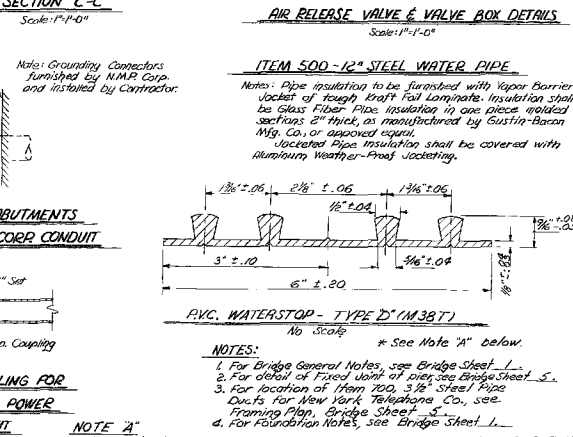 SECTION C-C
Scale: 1"=1'-0"
Note: Grounding Connectors
furnished by N.M.P. Corp.
and installed by Contractor.
ABUTMENTS
CORP. CONDUIT
Set
Coupling
LING FOR
POWER
NOTE "A"
AIR RELEASE VALVE & VALVE BOX DETAILS
Scale: 1"=1'-0"
ITEM 500-12" STEEL WATER PIPE
Notes: Pipe insulation to be furnished with Vapor Barrier
Jacket of tough Kraft Foil Laminate. Insulation shall
be Glass Fiber Pipe insulation in one piece molded
sections 2" thick, as manufactured by Gustin-Bacon
Mfg. Co., or appoved equal.
Jacketed Pipe insulation shall be covered with
Aluminum Weather-Proof Jacketing.
1 3/16" ±.06
2 1/8" ±.06
1 3/16" ±.06
1/2" ±.04
3" ±.10
5/16" ±.04
6" ±.20
P.V.C. WATERSTOP - TYPE "D" (M38T)
No Scale
* See Note "A" below.
NOTES:
1. For Bridge General Notes, see Bridge Sheet 1.
2. For detail of Fixed Joint at pier, see Bridge Sheet 5.
3. For location of Item 700, 3 1/2" Steel Pipe
Ducts for New York Telephone Co., see
Framing Plan, Bridge Sheet 5.
4. For Foundation Notes, see Bridge Sheet 1.